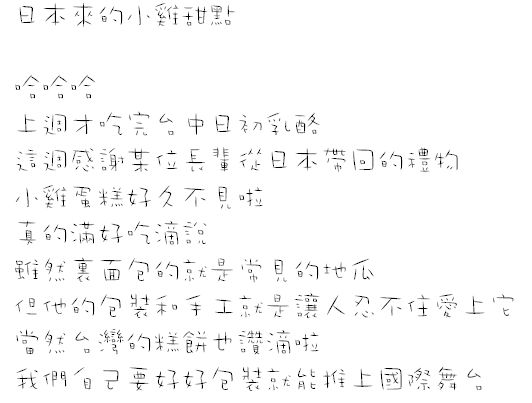 日本來的小雞甜點
哈哈哈
上週才吃完台中日初乳酪
這週感謝某位長輩從日本帶回的禮物
小雞蛋糕好久不見啦
真的滿好吃滴說
雖然裏面包的就是常見的地瓜
但他的包裝和手工就是讓人忍不住愛上它
當然台灣的糕餅也讚滴啦
我們自己要好好包裝就能推上國際舞台